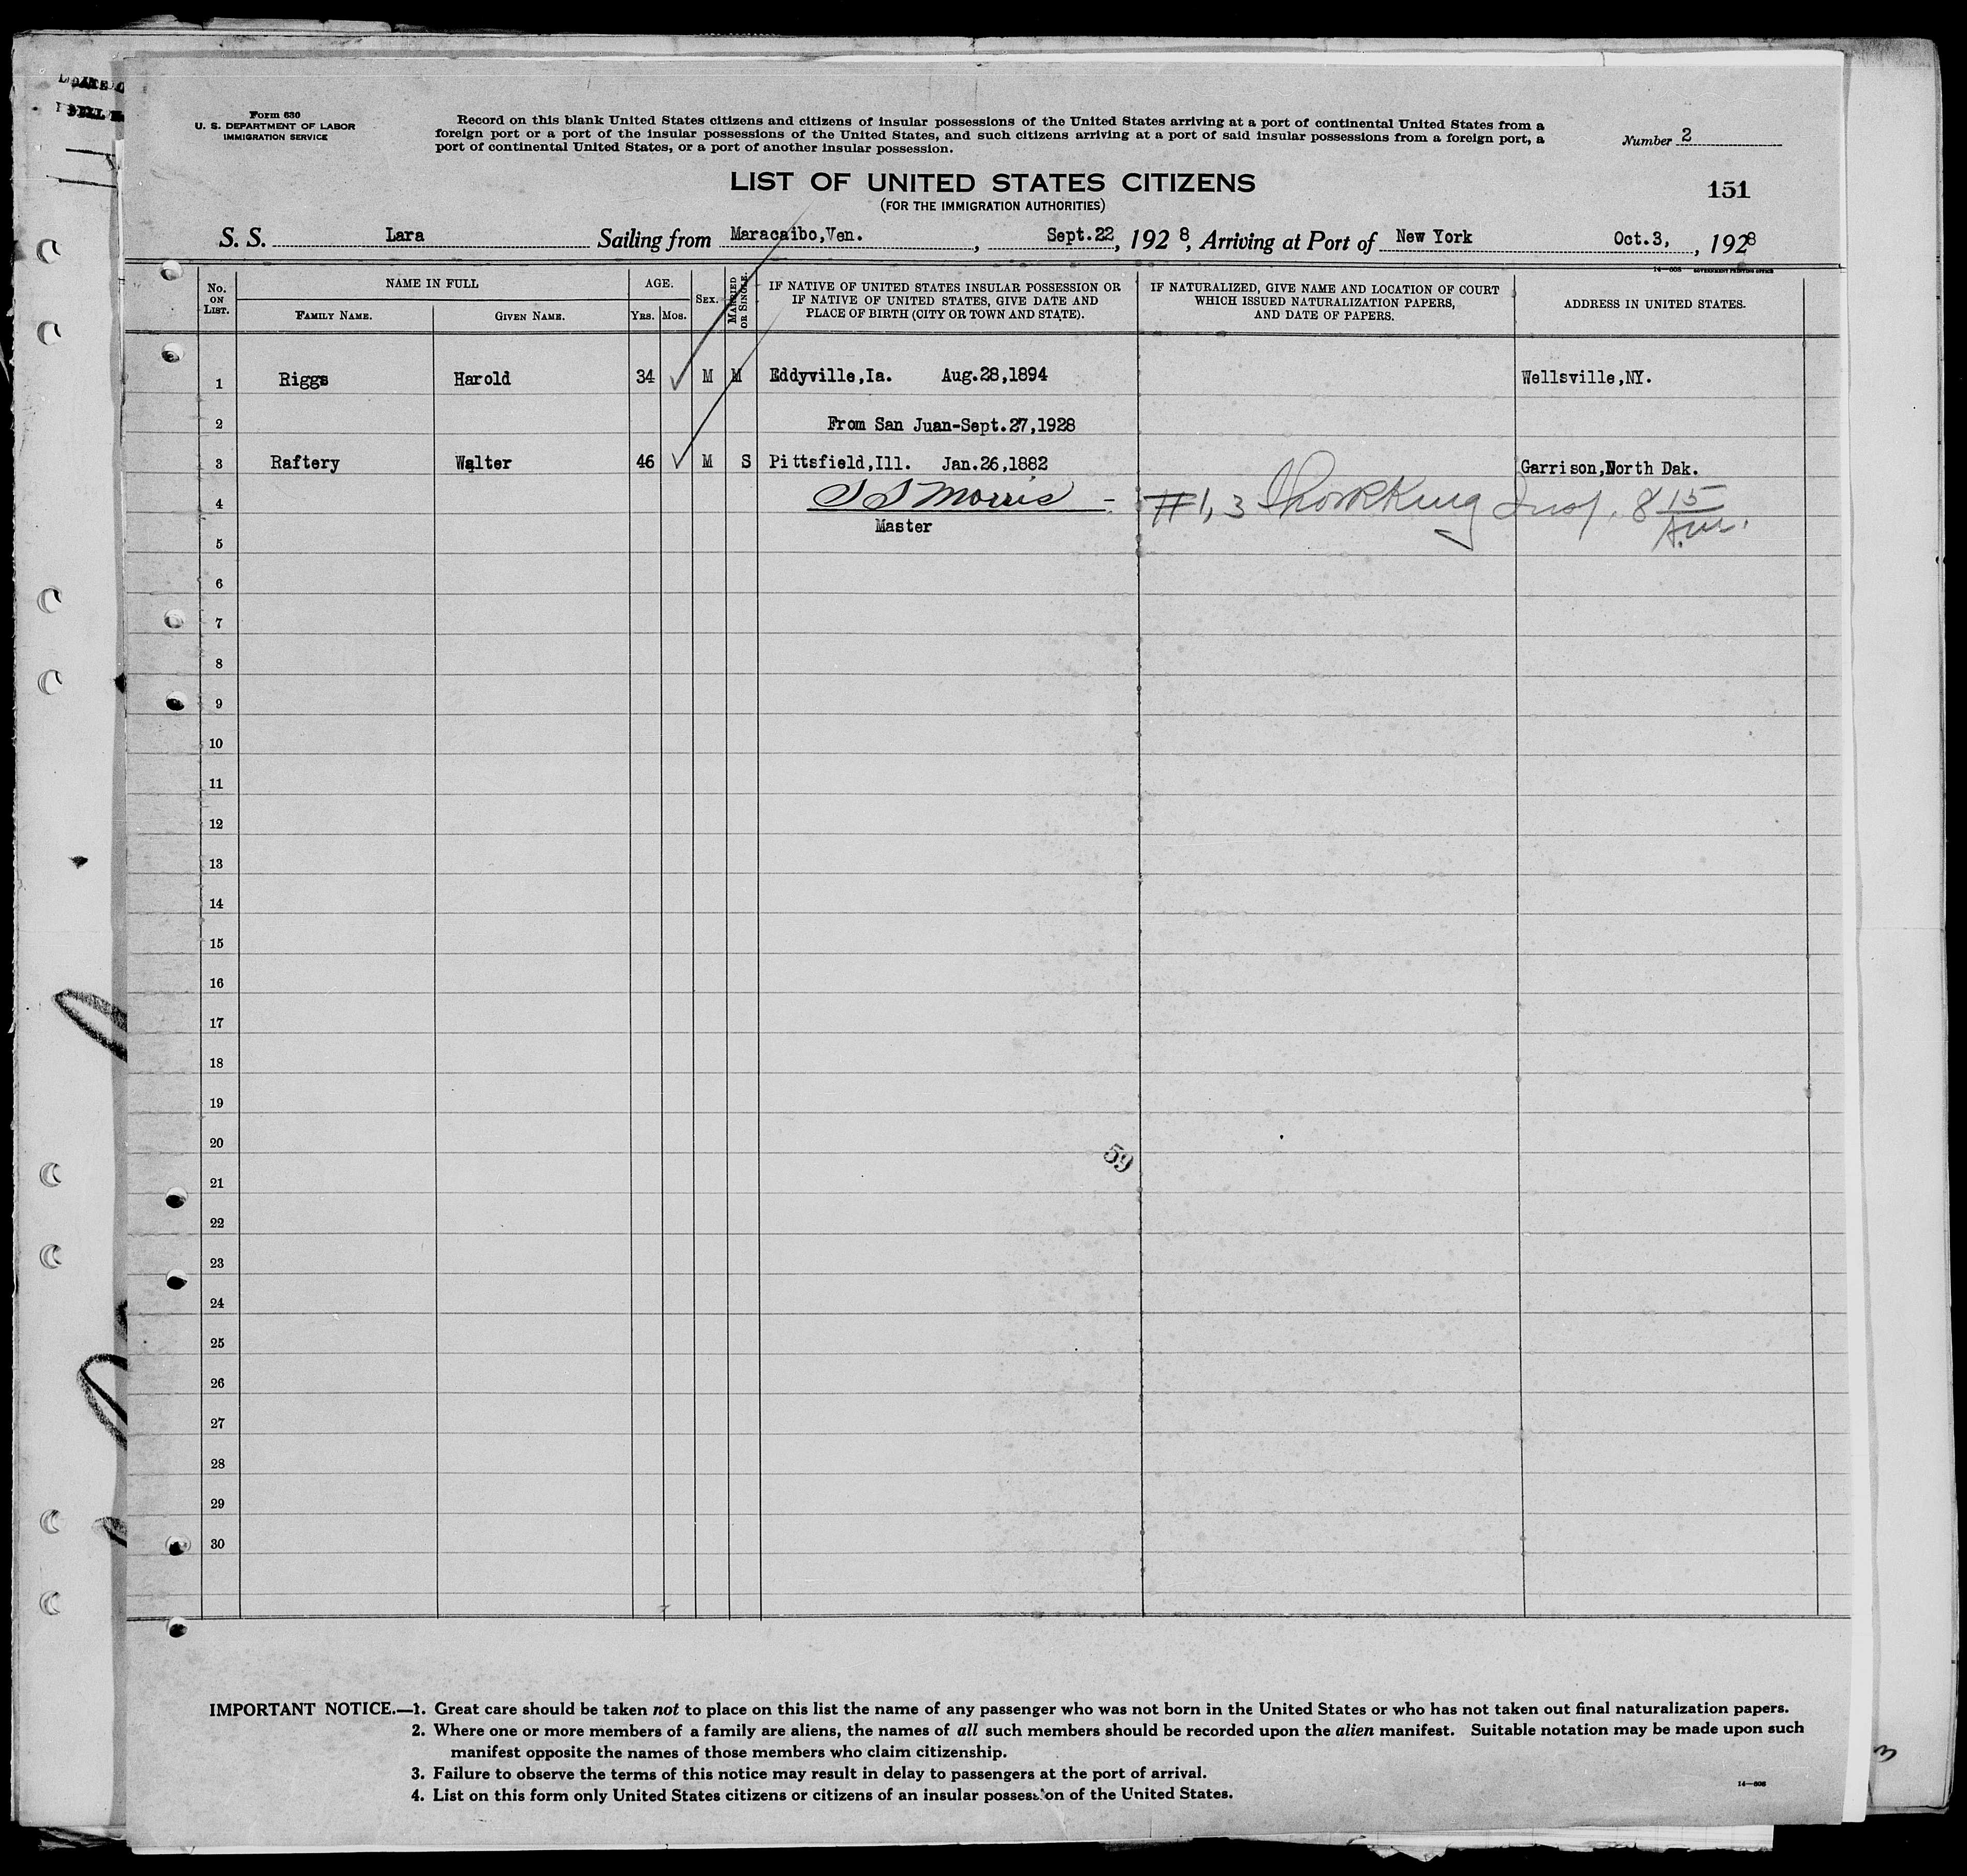 Form 630
U. S. DEPARTMENT OF LABOR
IMMIGRATION SERVICE
Record on this blank United States citizens and citizens of insular possessions of the United States arriving at a port of continental United States from a
foreign port or a port of the insular possessions of the United States, and such citizens arriving at a port of said insular possessions from a foreign port, a
port of continental United States, or a port of another insular possession.
Number 2
LIST OF UNITED STATES CITIZENS
(FOR THE IMMIGRATION AUTHORITIES)
151
S. S. Lara Sailing from Maracaibo,Ven. , Sept.22, 1928, Arriving at Port of New York Oct.3, , 1928
14—608 GOVERNMENT PRINTING OFFICE
No. ON LIST. NAME IN FULL FAMILY NAME. GIVEN NAME. AGE. YRS. MOS. SEX. MARRIED OR SINGLE. IF NATIVE OF UNITED STATES INSULAR POSSESSION OR IF NATIVE OF UNITED STATES, GIVE DATE AND PLACE OF BIRTH (CITY OR TOWN AND STATE). IF NATURALIZED, GIVE NAME AND LOCATION OF COURT WHICH ISSUED NATURALIZATION PAPERS, AND DATE OF PAPERS. ADDRESS IN UNITED STATES.
1 Riggs Harold 34 ✓ M M Eddyville,Ia. Aug.28,1894 Wellsville,NY.
2 From San Juan-Sept.27,1928
3 Raftery Walter 46 ✓ M S Pittsfield,Ill. Jan.26,1882 Garrison,North Dak.
4 Morris #1, 3 Insp. 8 15 A.M.
Master
5
6
7
8
9
10
11
12
13
14
15
16
17
18
19
20
59
21
22
23
24
25
26
27
28
29
30
IMPORTANT NOTICE.—1. Great care should be taken not to place on this list the name of any passenger who was not born in the United States or who has not taken out final naturalization papers.
2. Where one or more members of a family are aliens, the names of all such members should be recorded upon the alien manifest. Suitable notation may be made upon such
manifest opposite the names of those members who claim citizenship.
3. Failure to observe the terms of this notice may result in delay to passengers at the port of arrival.
4. List on this form only United States citizens or citizens of an insular possession of the United States.
14—608
3